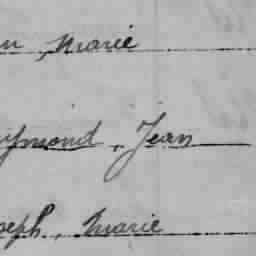 n, Marie
ymond, Jean
seph, Marie